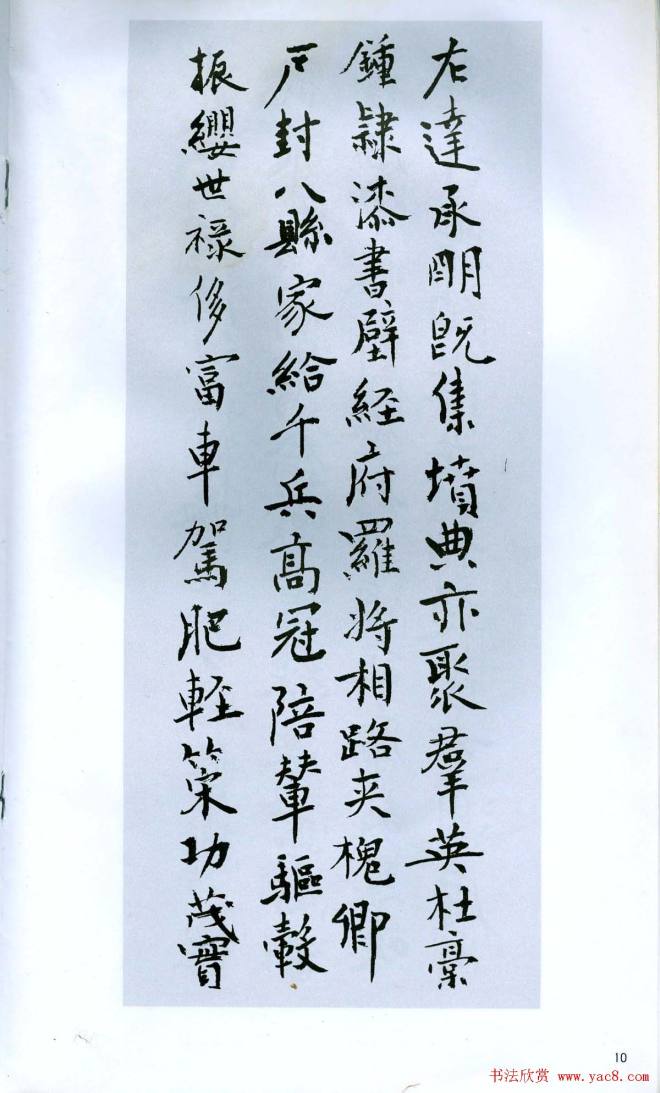 右達承明既集墳典亦聚羣英杜稾
鍾隸漆書壁経府羅将相路夾槐卿
户封八縣家給千兵高冠陪輦驅轂
振纓世祿侈富車駕肥軽策功茂實
10
书法欣赏 www.yac8.com